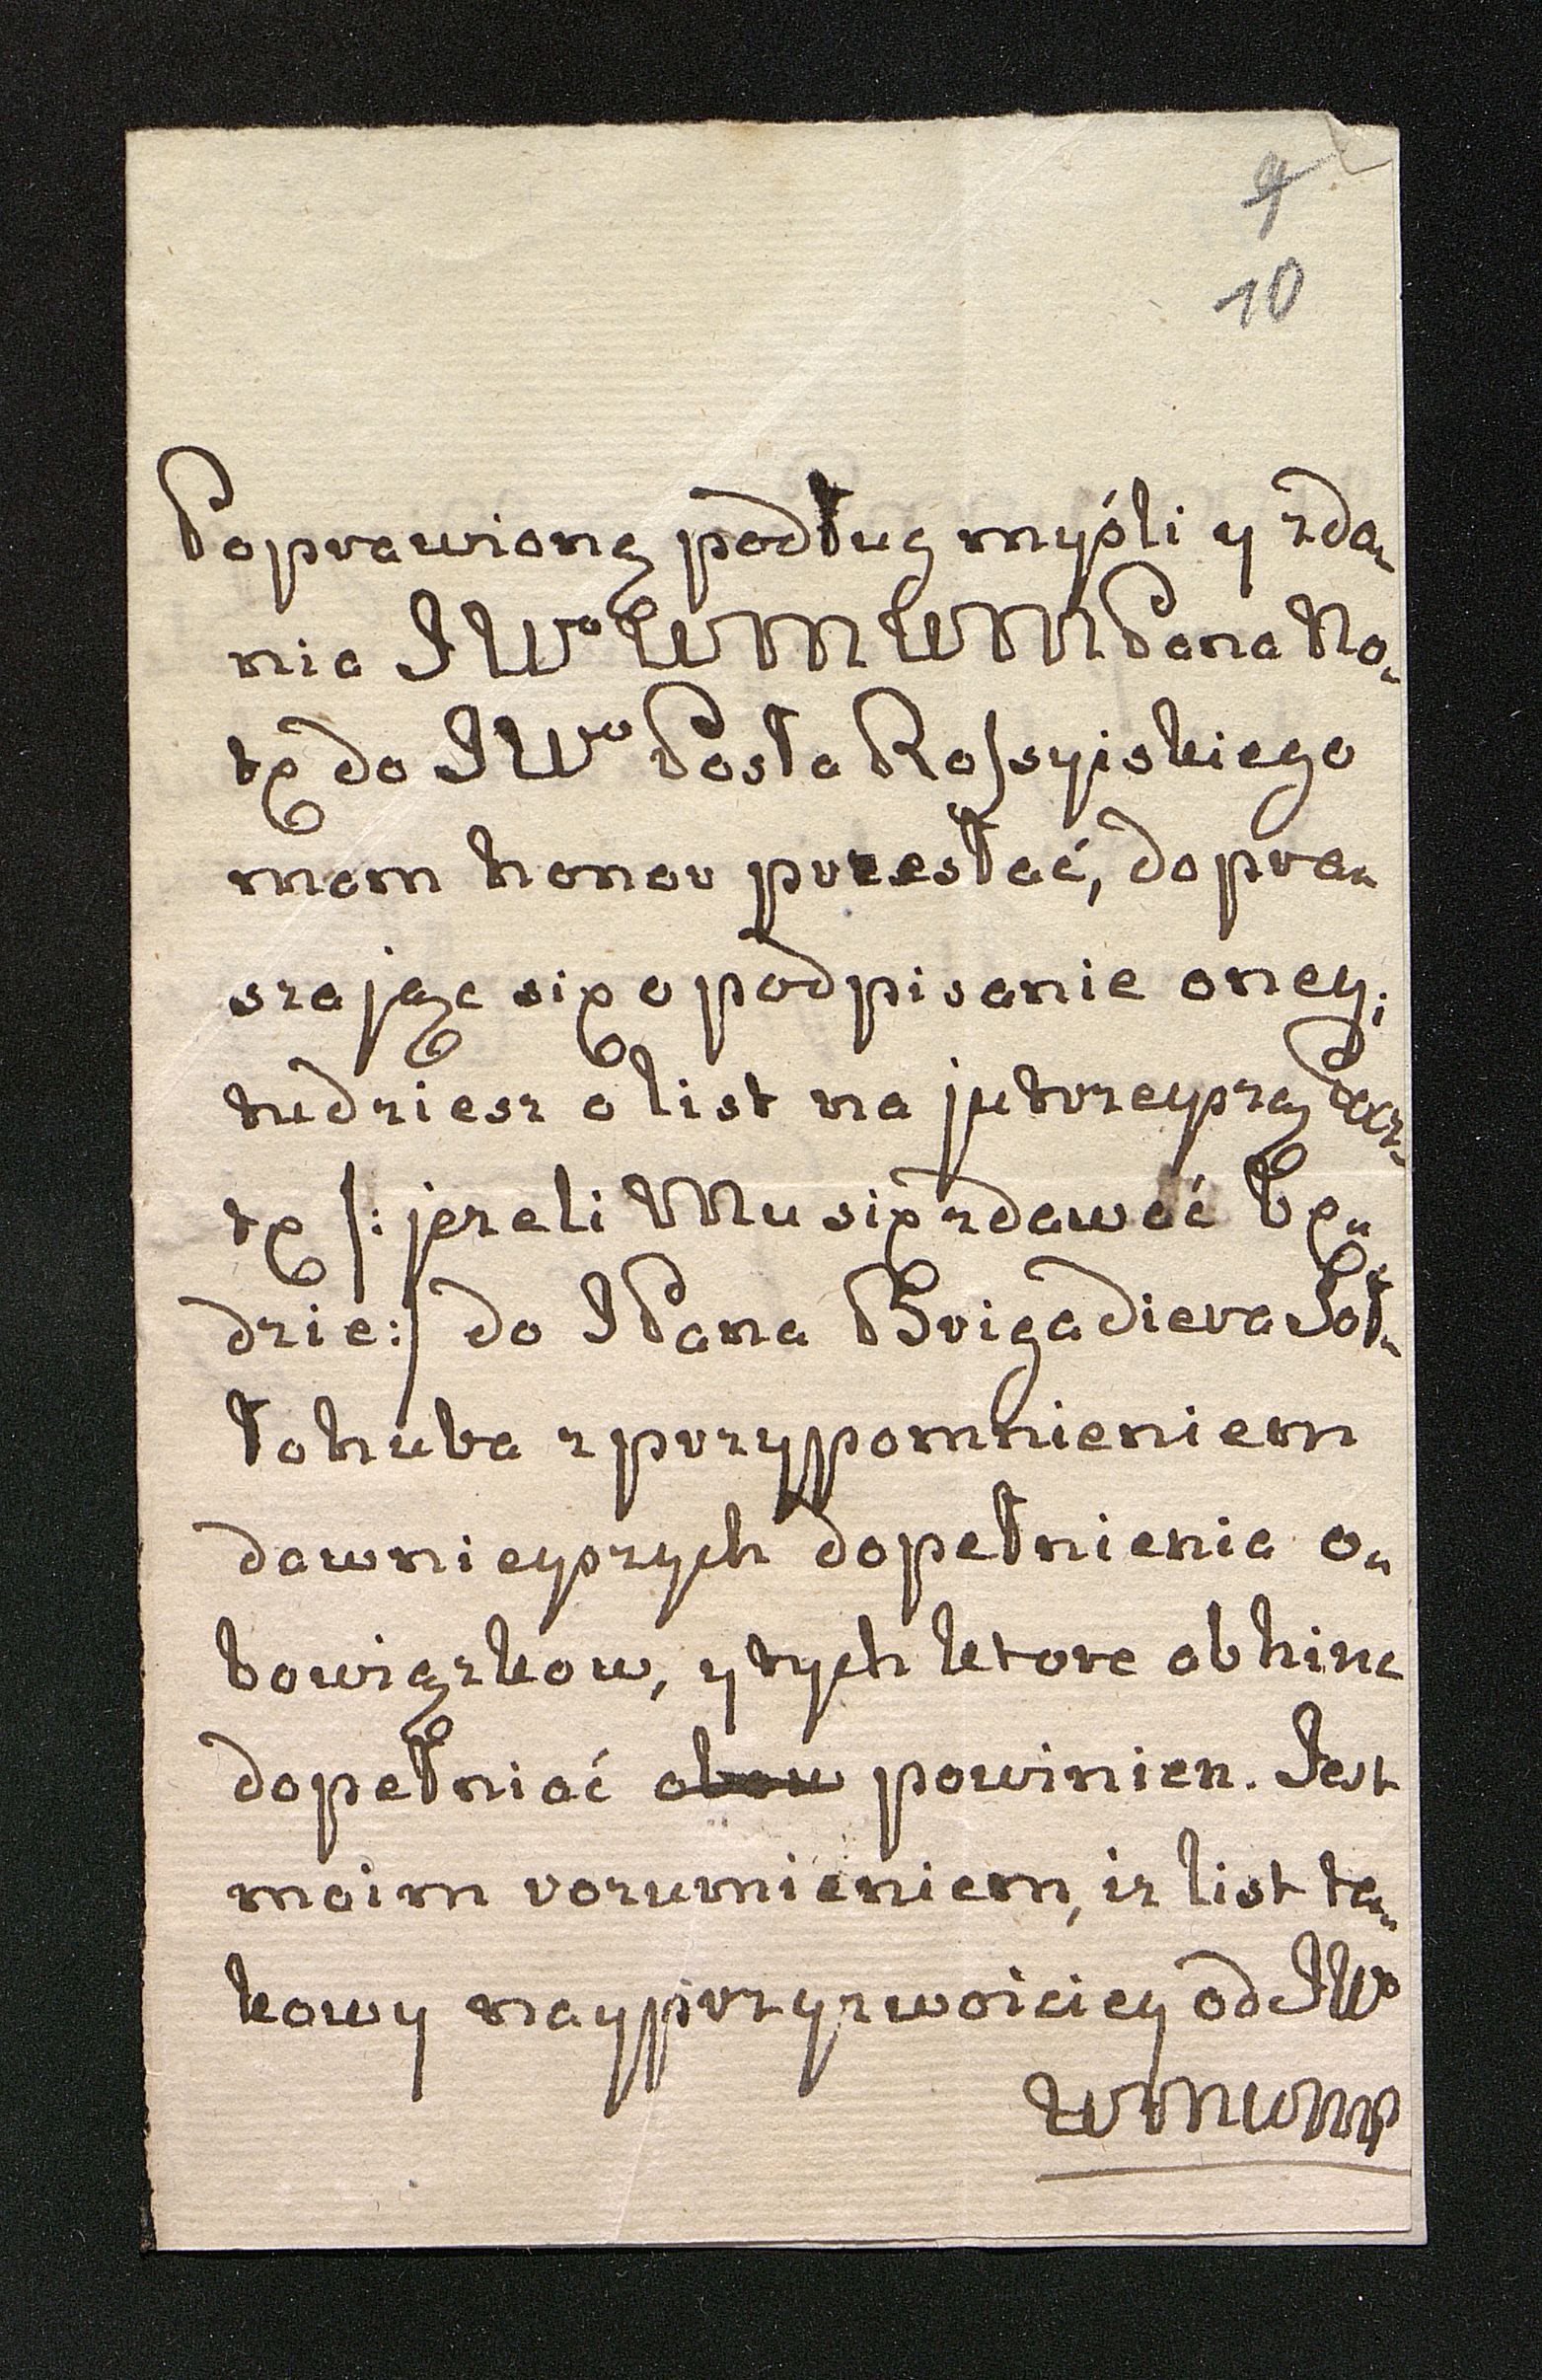 9
10
Poprawioną podług myśli y zda-
nia JWo WM WM Pana No-
tę do JWo Posła Rossyiskiego
mam honor przesłać, dopra-
szając się o podpisanie oney;
tudziesz o list na jutrzeyszą Pocz-
tę /: jezeli Mu się zdawać bę-
dzie :/ do J Pana Brigadiera Soł-
łohuba z przypomnieniem
dawnieyszych dopełnienia o-
bowiązkow, y tych ktore abhinc
dopełniać powinien. Jest
moim rozumieniem, iz list ta-
kowy nayprzyzwoiciey od JWo
WMWMP